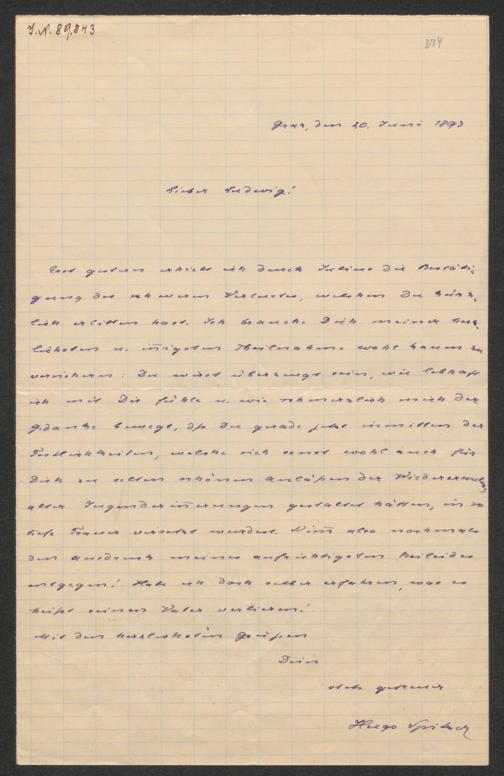 J.N. 89.843
214
Graz, den 20. Juni 1893
Lieber Ludwig!
Erst gestern erhielt ich durch Julius die Bestäti-
gung des schweren Verlustes, welchen Du kürz-
lich erlitten hast. Ich brauche Dich meiner herz-
lichsten u. innigsten Theilnahme wohl kaum zu
versichern: Du wirst überzeugt sein, wie lebhaft
ich mit Dir fühle u. wie schmerzlich mich der
Gedanke bewegt, daß Du gerade jetzt inmitten der
Festlichkeiten, welche sich sonst wohl auch für
Dich zu selten schönen Anläßen der Wiedererweckung
alter Jugenderinnerungen gestaltet hätten, in so
tiefe Trauer versetzt wurdest. Nimm also nochmals
den Ausdruck meines aufrichtigsten Beileides
entgegen! Habe ich doch selber erfahren, was es
heißt einen Vater verlieren!
Mit den herzlichsten Grüßen
Dein
stets getreuer
Hugo Spitzer